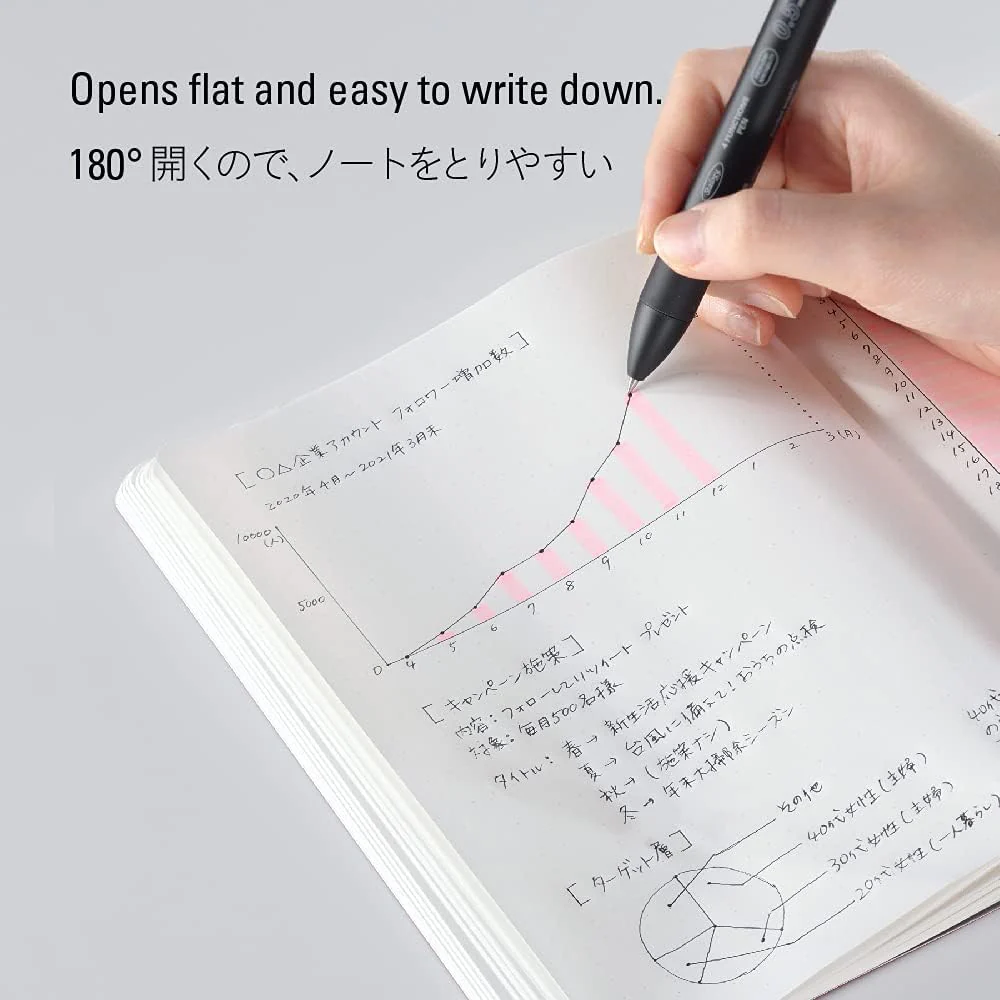 Opens flat and easy to write down.
180° 開くので、ノートをとりやすい
0.5
4 FUNCTION
PEN
[○△企業アカウント フォロワー増加数]
2020年4月〜2021年3月末
10000
(人)
5000
0
4 5 6 7 8 9 10 11 12 1 2 3(月)
[キャンペーン施策]
内容:フォローしてリツイート プレゼント
対象:毎月500名様
タイトル:春→新生活応援キャンペーン
夏→台風に備えて!おうちの点検
秋→(施策ナシ)
冬→年末大掃除シーズン
[ターゲット層]
その他
40代女性(主婦)
30代女性(主婦)
20代女性(一人暮らし)
4
5
6
7
8
9
10
11
12
13
14
15
16
17
18
40代
の